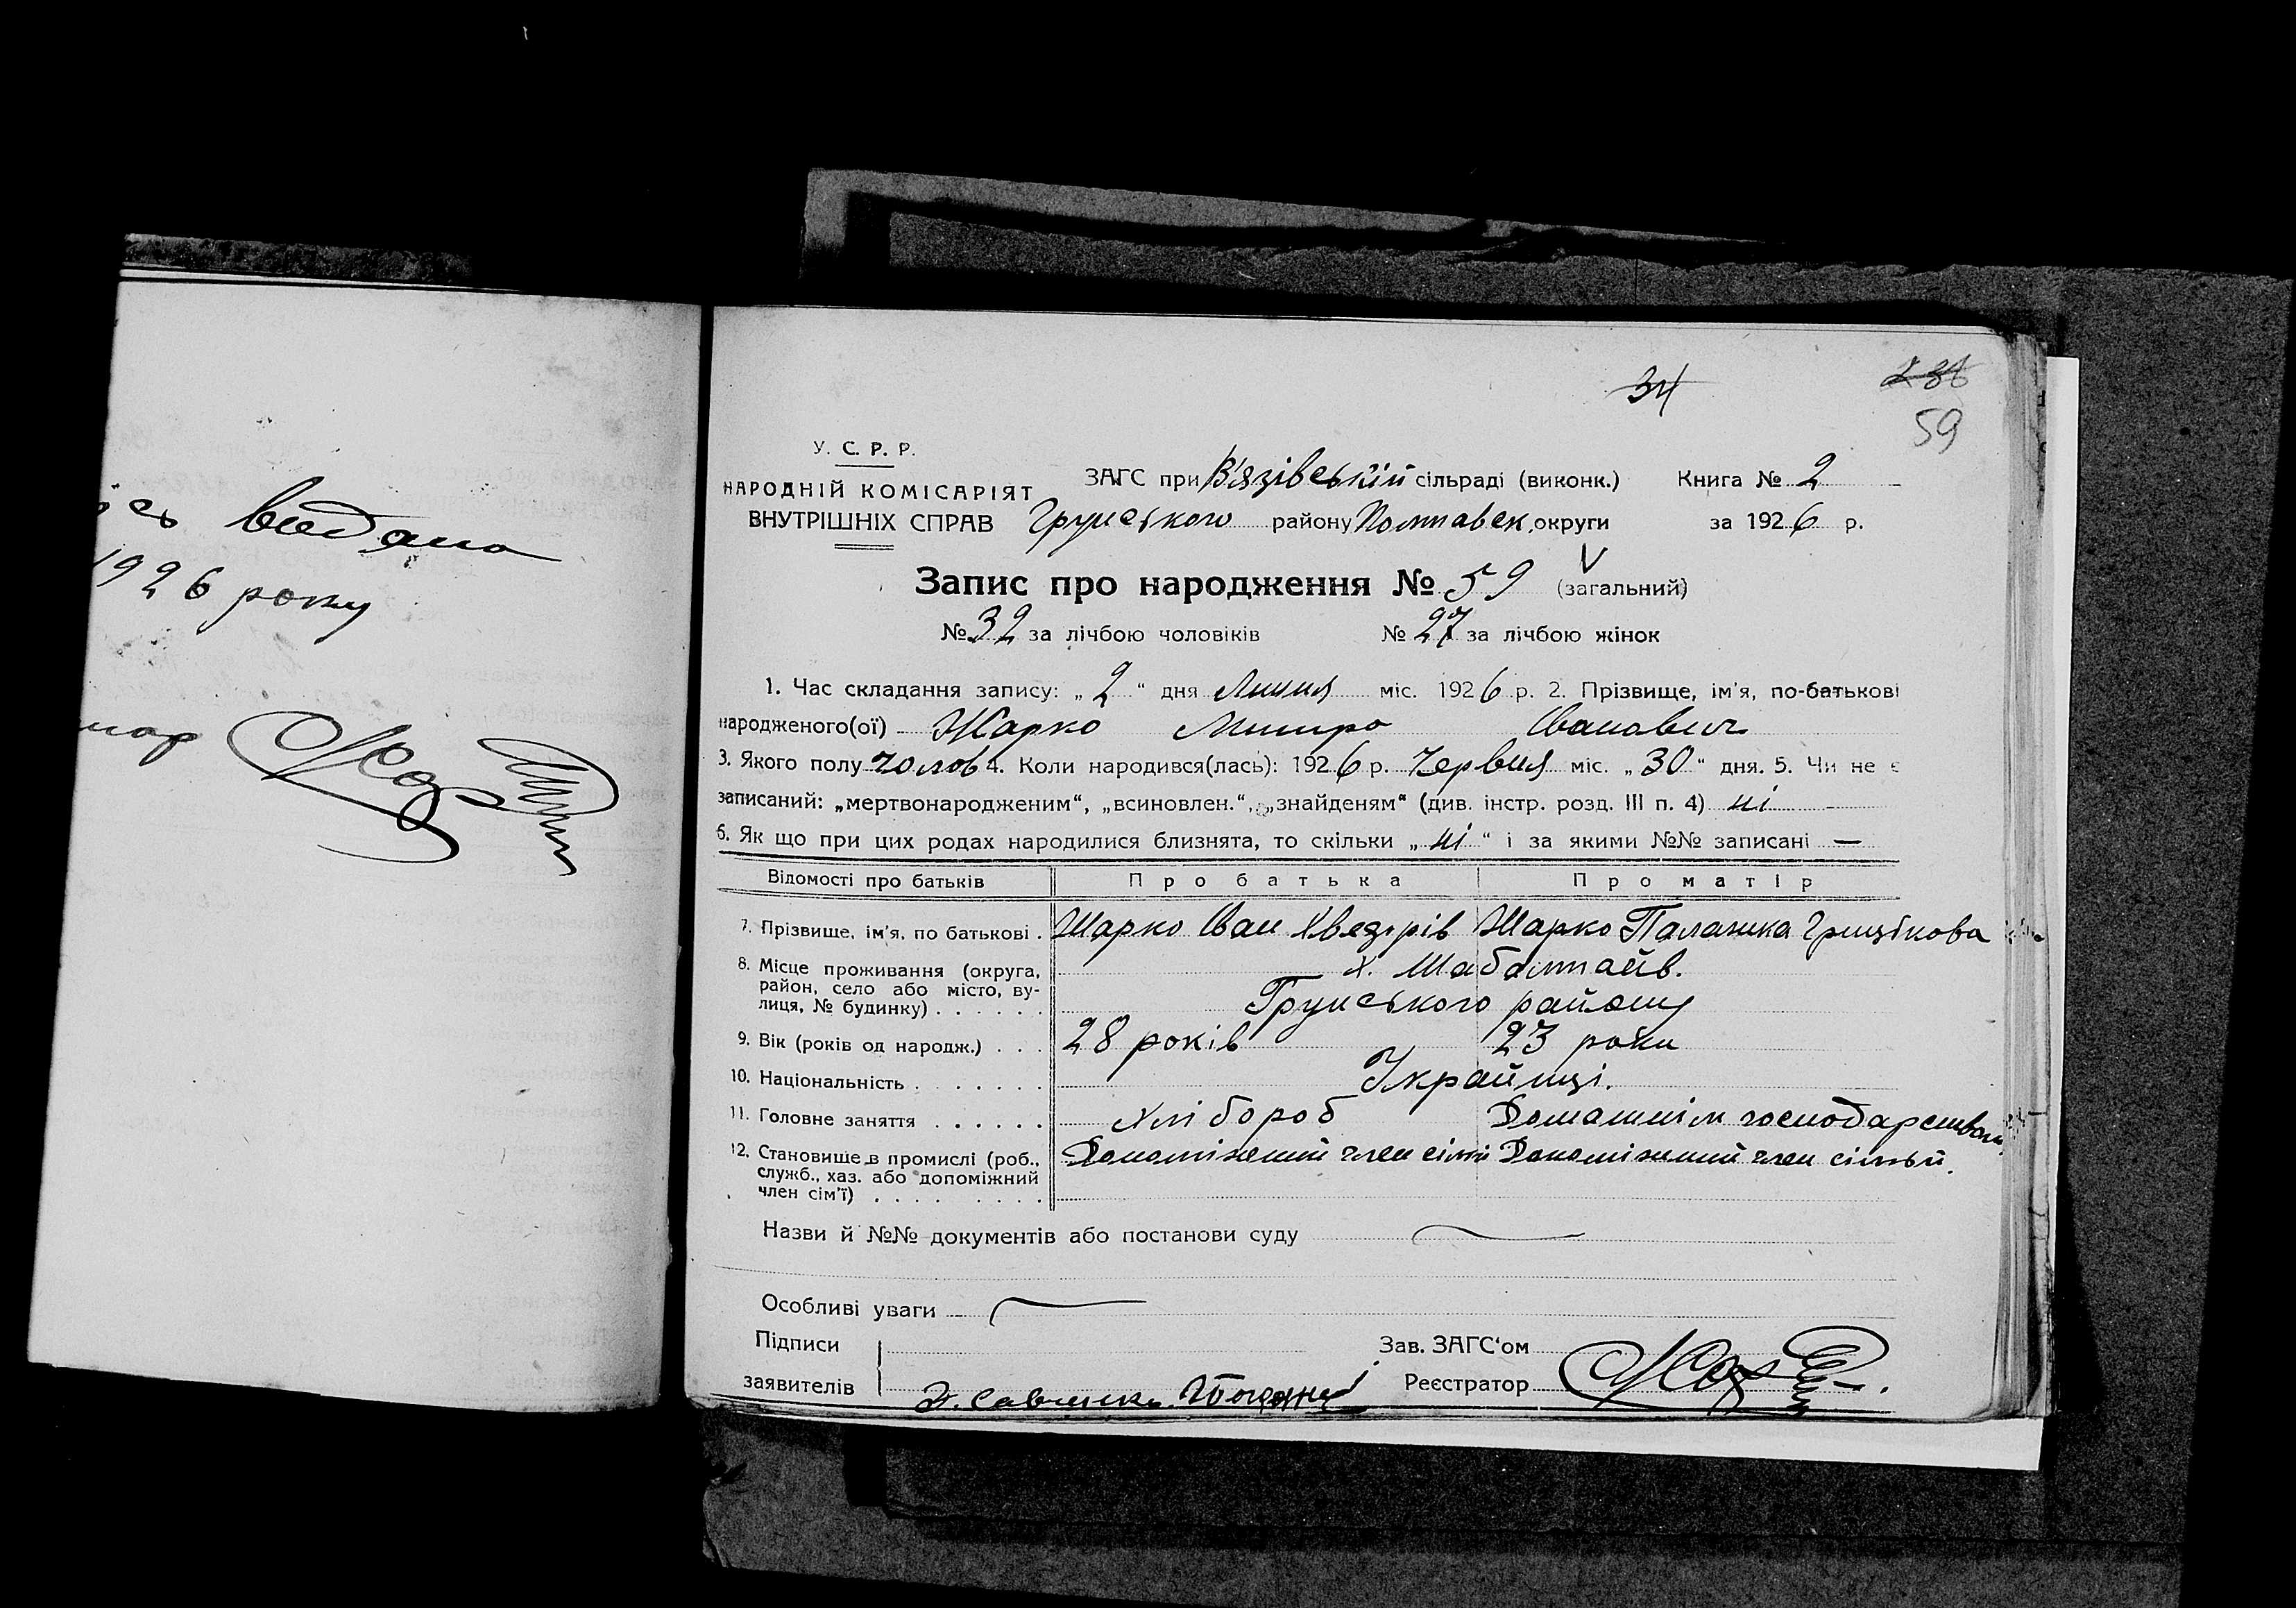 видано
1926 року
34
236
59
У. С. Р. Р.
НАРОДНІЙ КОМІСАРІЯТ
ВНУТРІШНІХ СПРАВ
ЗАГС при Вязівський сільраді (виконк.) Книга № 2
Грунського району Полтавськ. округи за 1926 р.
Запис про народження № 59 (загальний)
№ 32 за лічбою чоловіків № 27 за лічбою жінок
1. Час складання запису: „ 2 “ дня Липня міс. 1926 р. 2. Прізвище, ім'я, по-батькові
народженого(ої) Жарко Митро Іванович
3. Якого полу чолов 4. Коли народився(лась): 1926 р. Червня міс. „ 30 “ дня. 5. Чи не є
записаний: „мертвонародженим“, „всиновлен.“, „знайденям“ (див. інстр. розд. III п. 4) ні
6. Як що при цих родах народилися близнята, то скільки „ ні “ і за якими №№ записані —
Відомості про батьків Про батька Про матір
7. Прізвище, ім'я, по батькові . Жарко Іван Хведорів Жарко Палажка Грицікова
8. Місце проживання (округа, район, село або місто, вулиця, № будинку) . . . . . . х. Шабалтаїв.
Грунського району
9. Вік (років од народж.) . . . 28 років 23 роки
10. Національність . . . . . . . Українці.
11. Головне заняття . . . . . . Хлібороб Домашнім господарством
12. Становище в промислі (роб., служб., хаз. або допоміжний член сім'ї) . . . . . . . . Допоміжний член сімї Допоміжний член сімьи.
Назви й №№ документів або постанови суду
Особливі уваги
Підписи
заявителів
Зав. ЗАГС'ом
Реєстратор